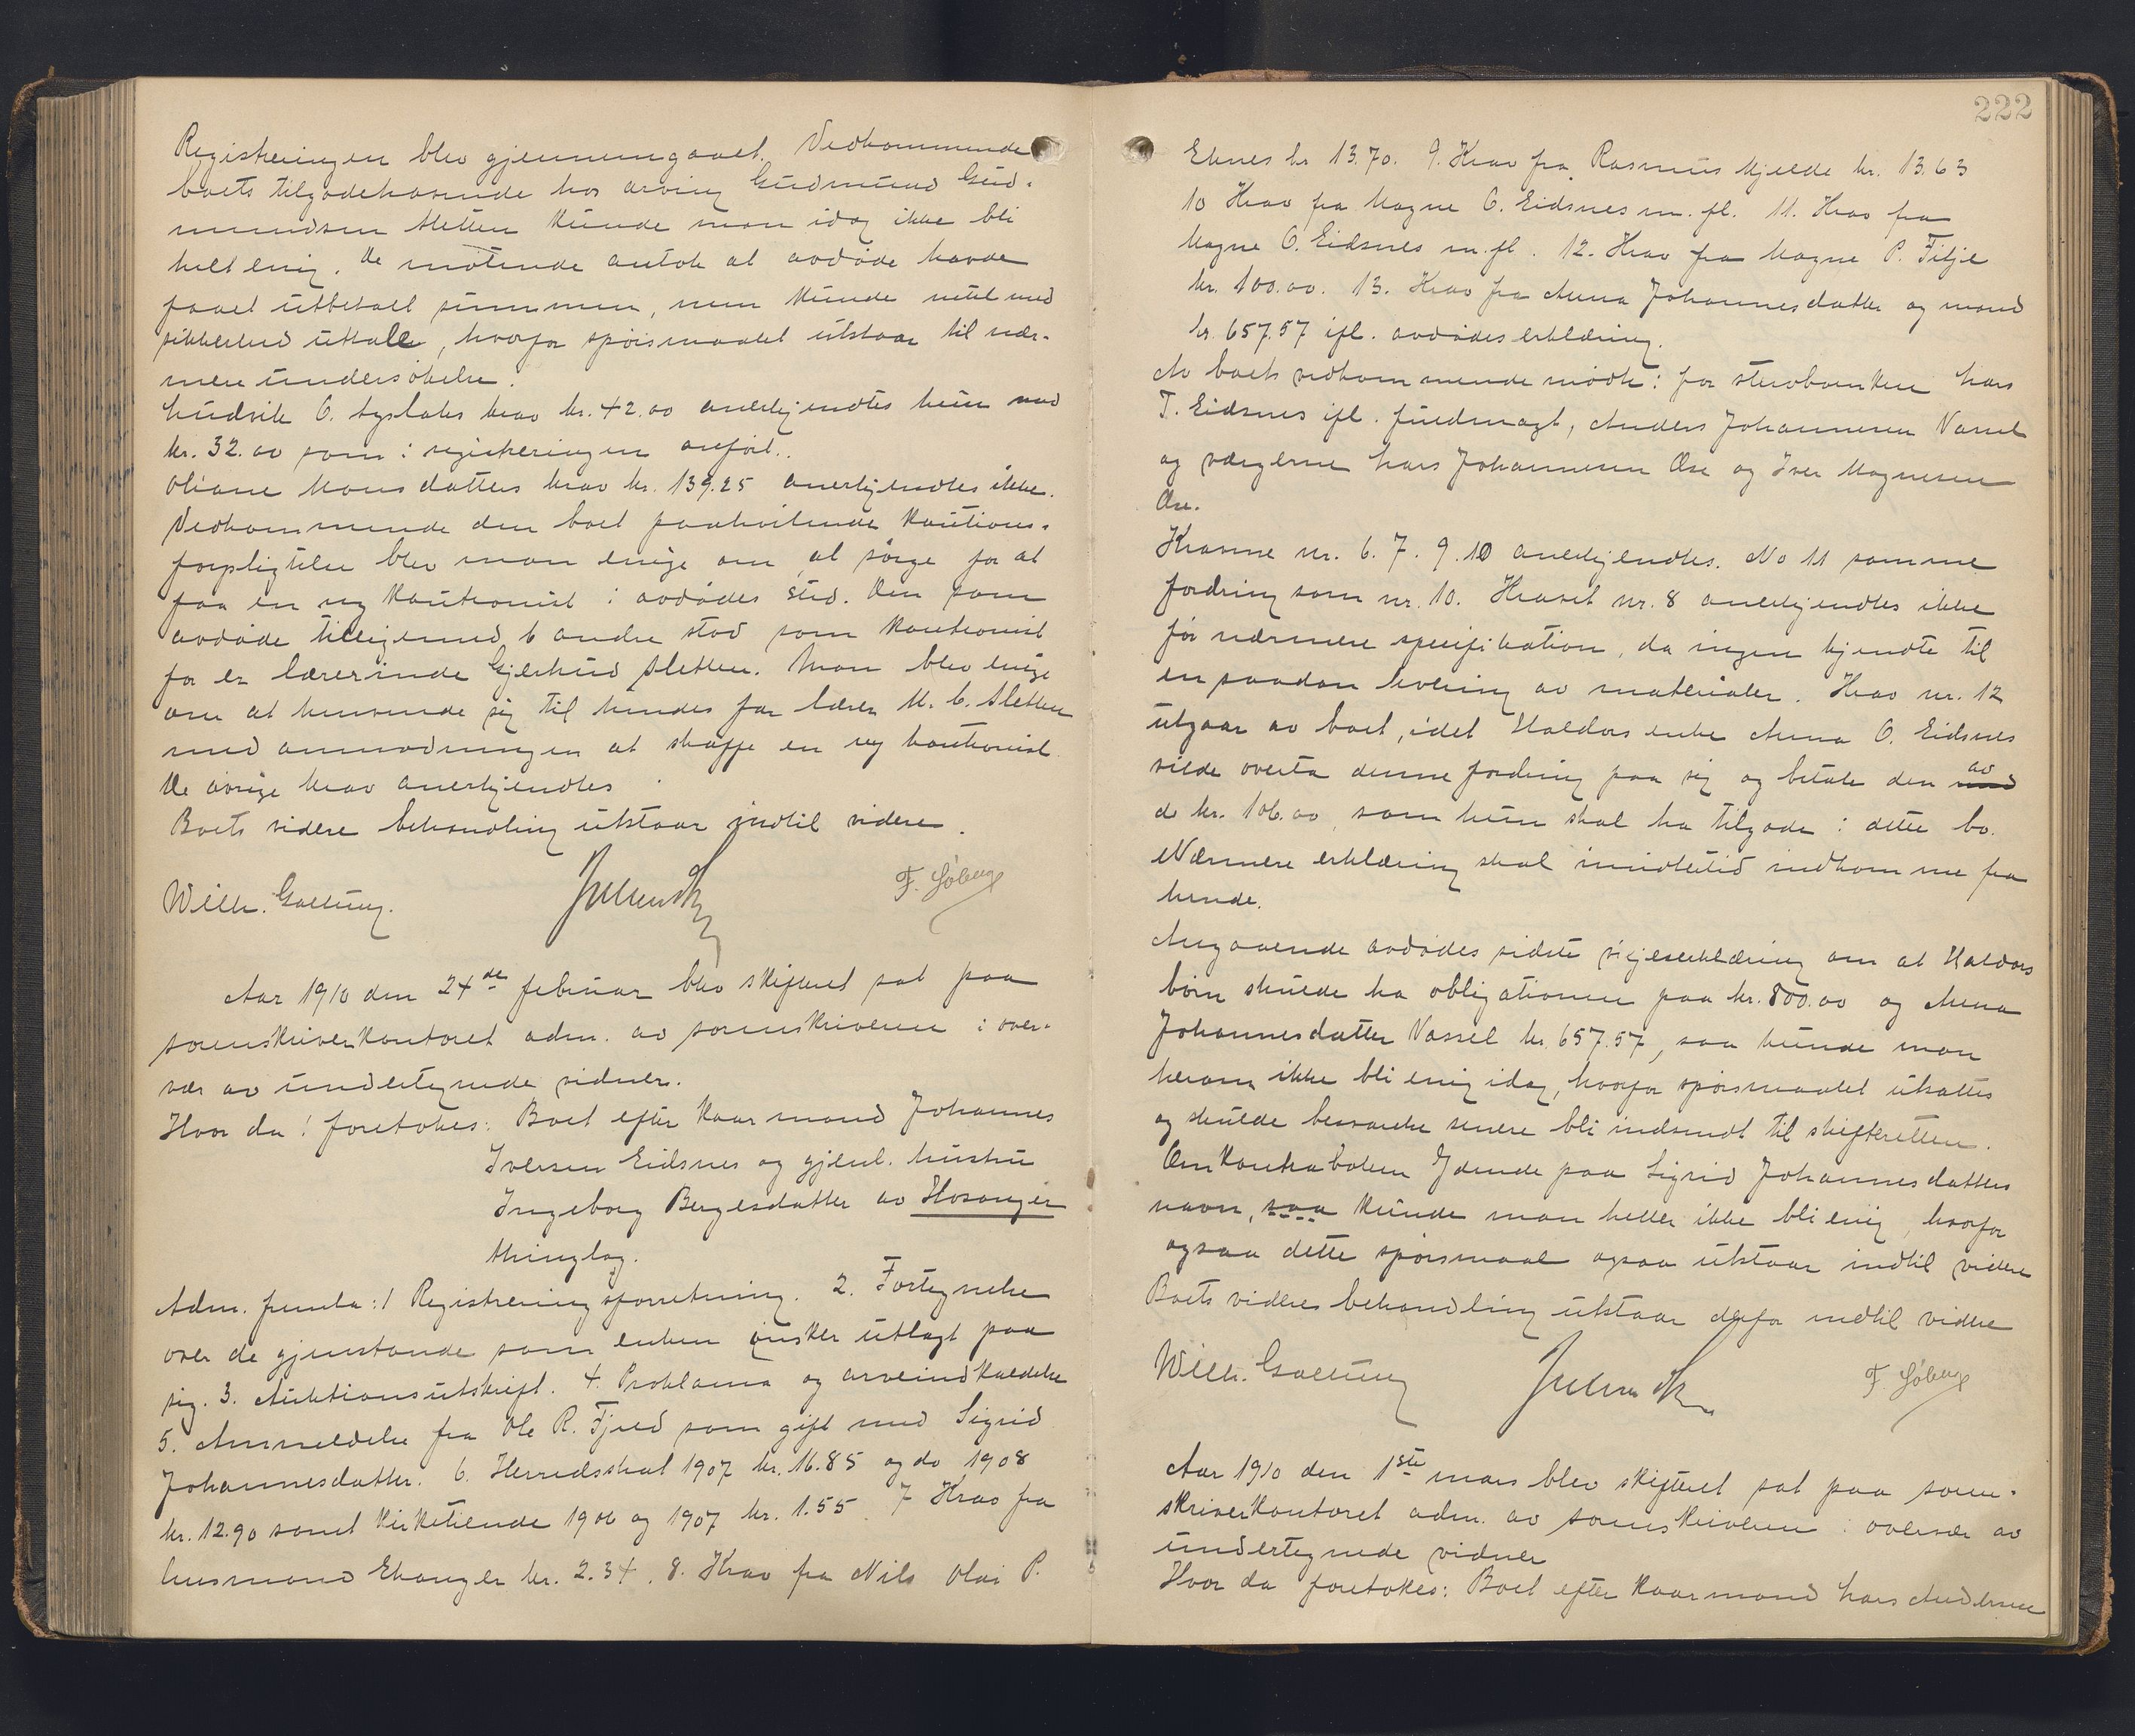 Registreringen blev gjennemgaaet. Vedkommende
boets tilgodehavende hos arving Gudmund Gud-
mundsen Sletten kunde man idag ikke bli
helt enig. De møtende antok at avdøde havde
faaet utbetalt summen, men kunde intet med
sikkerhed uttale, hvorfor spørsmaalet utstaar til nær-
mere undersøkelse.
Ludvik O. krav kr. 42.00 anerkjendtes kun med
kr. 32.00 som i registreringen anført.
Oliane Monsdatters krav kr. 139.25 anerkjendtes ikke.
Vedkommende den boet paahvilende kautions-
forpligtelse blev man enige om at sørge for at
faa en ny kautionist i avdødes sted. Den som
avdøde tilligemed 6 andre stod som kautionist
for er lærerinde Gjertrud Sletten. Man blev enige
om at henvende sig til hendes far lærer M. G. Sletten
med anmodningen at skaffe en ny kautionist
De øvrige krav anerkjendtes
Boets videre behandling utstaar indtil videre.
Wilh. Gollung. F. Søberg
Aar 1910 den 24de februar blev skifteret sat paa
sorenskriverkontoret adm. av sorenskriveren i over-
vær av undertegnede vidner.
Hvor da! foretokes: Boet efter kaarmand Johannes
Iversen Eidsnes og gjenl. hustru
Ingeborg Børgesdatter av Hosanger
thinglag.
Adm. fremla: 1 Registreringsforretning. 2. Fortegnelse
over de gjenstande som enken ønsker utlagt paa
sig. 3. Auktionsutskrift. 4. Proklama og arveindkaldelse
5. Anmeldelse fra Ole R. Fjeld som gift med Sigrid
Johannesdatter. 6. Herredsskat 1907 kr. 16.85 og do 1908
kr. 12.90 samt kirketiende 1906 og 1907 kr. 1.55 7 Krav fra
husmand Ekanger kr. 2.34. 8. Krav fra Nils Olai P.
222
Eknes kr 13.70. 9. Krav fra Rasmus Kjelde kr. 13.63
10 Krav fra Magne O. Eidsnes m. fl. 11. Krav fra
Magne O. Eidsnes m. fl. 12. Krav fra Magne P. Tilje
kr. 100.00. 13. Krav fra Anna Johannesdatter og mand
kr. 657.57 ifl. avdødes erklæring.
Av boets vedkommende møtte: for stervboenken Lars
T. Eidsnes ifl. fuldmagt, Anders Johannesen Vassel
og værgerne Lars Johannesen Øse og Iver Magnesen
Øse.
Kravene nr. 6. 7. 9. 10 anerkjendtes. No 11 samme
fordring som nr. 10. Kravet nr. 8 anerkjendtes ikke
før nærmere specifikation, da ingen kjendte til
en saadan levering av materialer. Krav nr. 12
utgaar av boet, idet Haldors enke Anna O. Eidsnes
vilde overta denne fordring paa sig og betale den med av
de kr. 106.00, som hun skal ha tilgode i dette bo.
Nærmere erklæring skal imidlertid indkomme fra
hende.
Angaaende avdødes sidste viljeserklæring om at Haldors
børn skulde ha obligationen paa kr. 800.00 og Anna
Johannesdatter Vassel kr. 657.57, saa kunde man
herom ikke bli enig idag, hvorfor spørsmaalet utsattes
og skulde besvarelse senere bli indsendt til skifteretten.
Om kontraboken lydende paa Sigrid Johannesdatters
navn, saa kunde man heller ikke bli enig, hvorfor
ogsaa dette spørsmaal ogsaa utstaar indtil videre
Boets videre behandling utstaar derfor indtil videre
Wilh. Gollung F. Søberg
Aar 1910 den 1ste mars blev skifteret sat paa soren-
skriverkontoret adm. av sorenskriveren i overvær av
undertegnede vidner
Hvor da foretokes: Boet efter kaarmand Lars Andersen